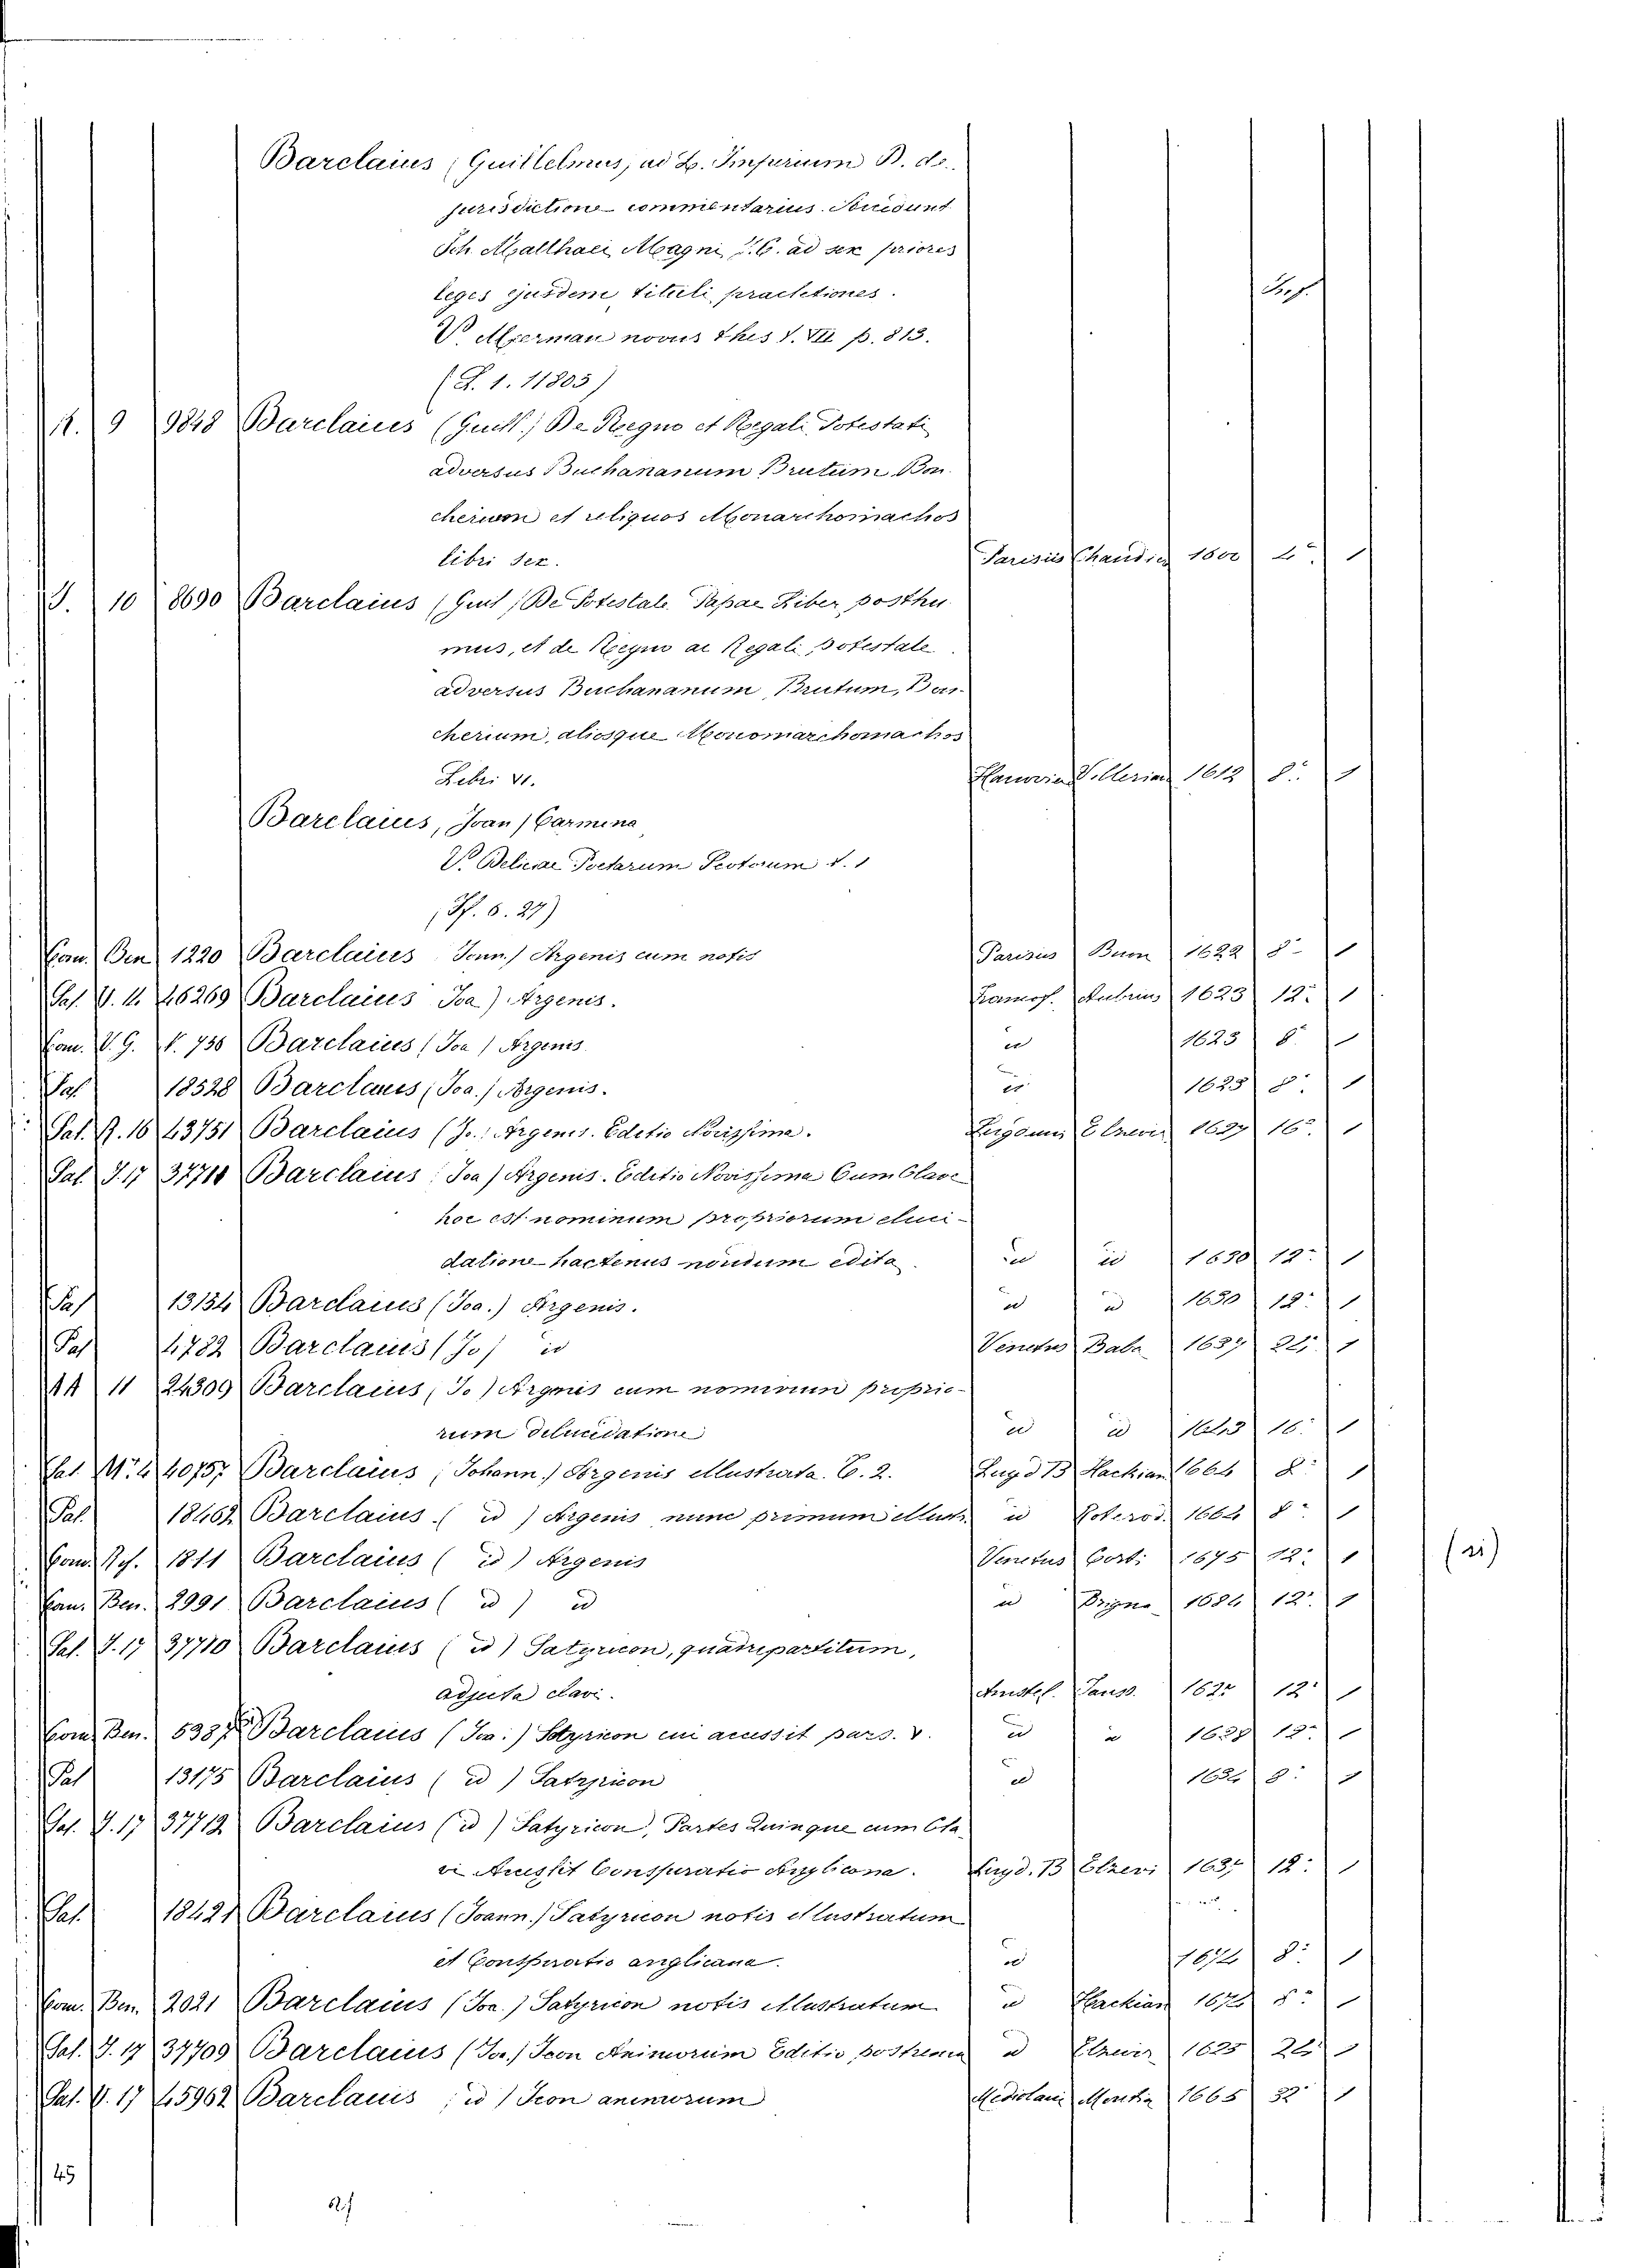 Barclaius (Guillelmus, ad L. Imperium D. de
jurisdictione commentarius
Sch Matthaei Magni J. C. ad sex priores
leges ejusdem tituli
V. Meerman novus thes t. VII p. 813.
(L. 1. 11805)
9 9848 Barclaius (Guill.) De Regno et Regali Potestati
adversus Buchananum Brutum Bou
cherium et reliquos Monarchomachos
libri sex. Parisiis 1600 4° 1
10 8690 Barclaius (Guil) De Potestate Papae Liber posthu
mus, et de Regno ac Regali potestate
adversus Buchananum Brutum, Bou
cherium, aliosque Monomarchomachos
Libri VI. 1612 8° 1
Barclaius, Joan) Carmina
V. Deliciae Poetarum Scotorum t. 1
(Ff. 6. 27)
Can. Ben 1220 Barclaius Joan.) Argenis cum notis Parisiis Buon 1622 8° 1
Pal. V. 11. 46269 Barclaius Joa) Argenis. 1623 12° 1
V. G. t. 738 Barclaius (Joa) Argenis id 1623 8° 1
Pal 18528 Barclaius (Joa.) Argenis. id 1623 8° 1
Pal. R. 16 43751 Barclaius (Jo.) Argenis. Editio Novissima. Elzevir 16° 1
Pal J. 17 37711 Barclaius (Joa) Argenis. Editio Novissima Cum Clave
hoc est nominum propriorum eluci-
datione hactenus nondum edita id id 1630 12° 1
Pal 13134 Barclaius (Joa.) Argenis. id id 1630 12° 1
Pal 4782 Barclaius (Jo) id Venetiis Baba 1637 24° 1
11 24309 Barclaius (Jo) Argenis cum nominum proprio-
rum dilucidatione id id 16° 1
Pal. 40757 Barclaius (Johann.) Argenis illustrata. C. 2. Lugd B Hackian 1664 8° 1
Pal. 18462 Barclaius (id) Argenis nunc primum illust id Roterod. 1664 8° 1
1811 Barclaius (id) Argenis Venetiis 1675 12° 1
Can. Ben. 2991 Barclaius (id) id id 12° 1
Pal. J. 17 37710 Barclaius (id) Satyricon, quadripartitum,
adjecta clavi. Amstel. 12° 1
Ben. 5387 Barclaius (Jo.) Satyricon cui accessit pars. V. id id 12° 1
Pal 13175 Barclaius (id) Satyricon id 1634 8° 1
Pal. J. 17 37712 Barclaius (id) Satyricon, Partes Quinque cum Cla
vi Accessit Conspiratio Anglicana. Lugd. B Elzevi 1637 12° 1
Pal. 18421 Barclaius (Joann.) Satyricon notis illustratum
et Conspiratio anglicana. id 1674 8° 1
Ben. 2021 Barclaius (Joa.) Satyricon notis illustratum id Hackian 8° 1
Pal. J. 17 37709 Barclaius (Jo.) Icon Animorum Editio postrema id Elzevir 1625 24° 1
Pal. V. 17 45962 Barclaius (id) Icon animorum Mediolani 1665 32° 1
(21)
45